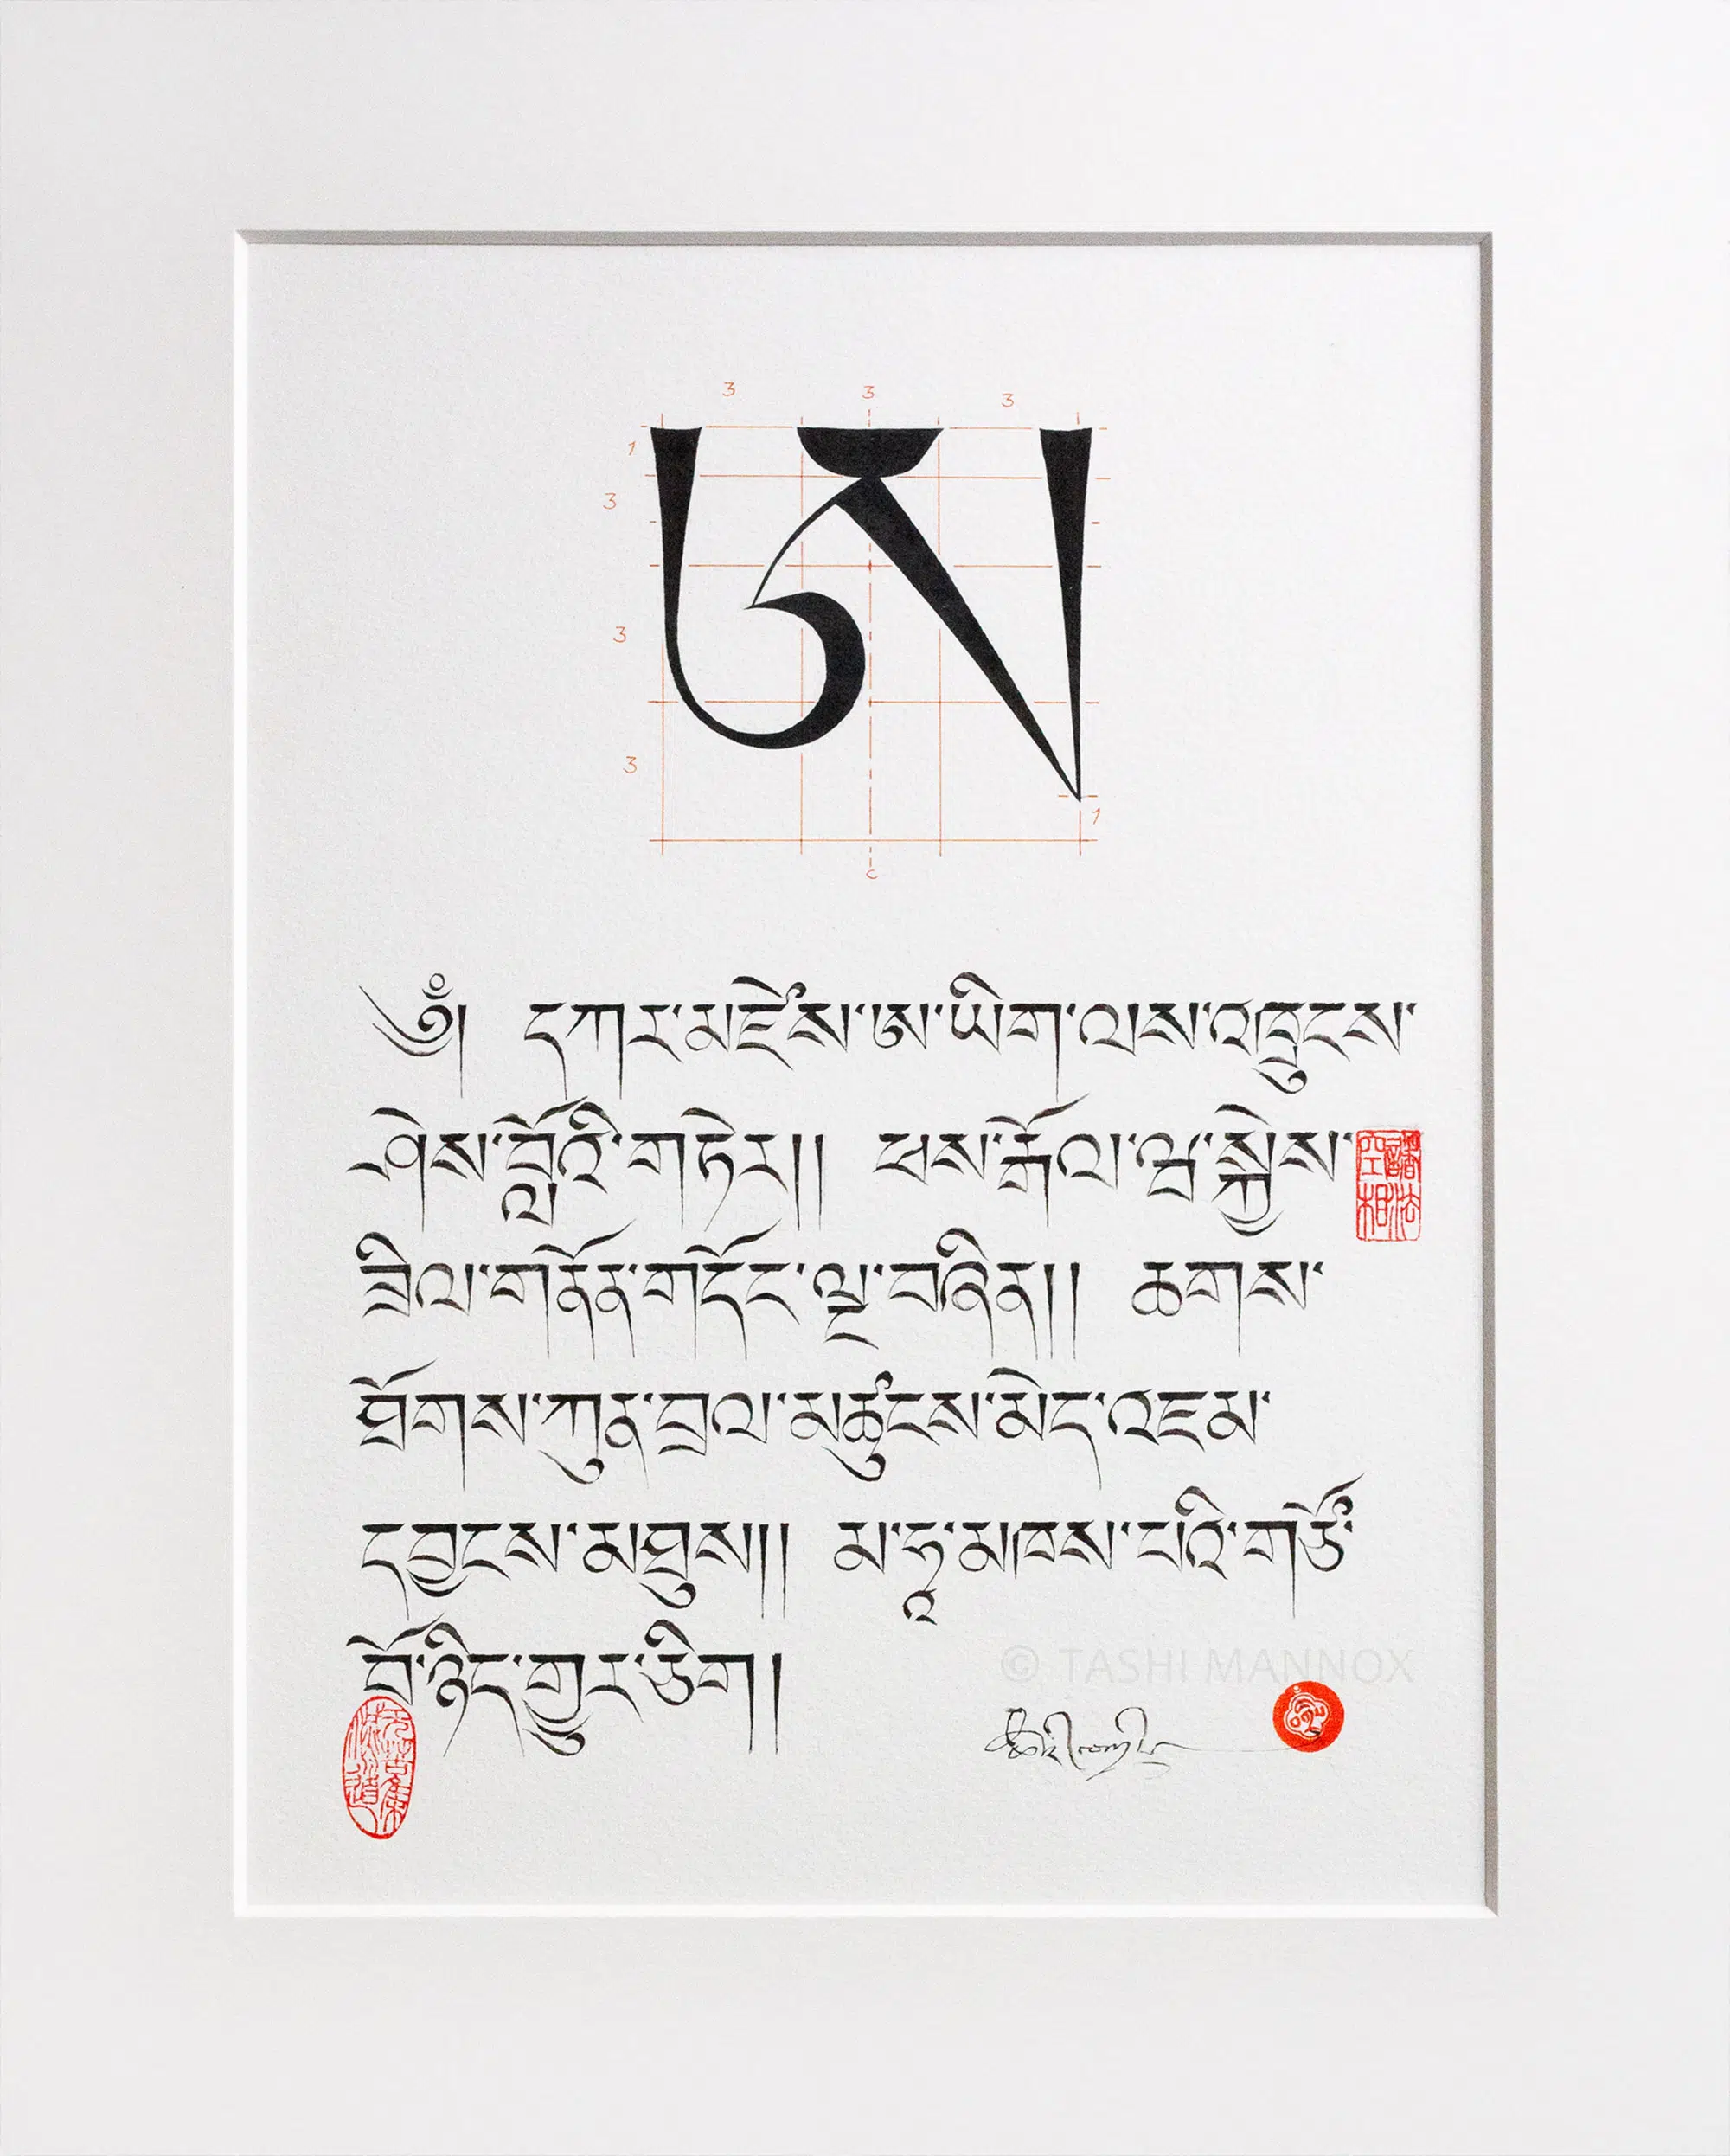 3 3 3
1
3
3
3
1
c
ཨ
༄༅། དཀར་མཛེས་ཨ་ཡིག་ལས་འཁྲུངས་
ཤེས་བློའི་གཏེར།། ཕས་རྒོལ་ཝ་སྐྱེས་
諸法空相
ཟིལ་གནོན་གདོང་ལྔ་བཞིན།། ཆགས་
ཐོགས་ཀུན་བྲལ་མཚུངས་མེད་འཇམ་
དབྱངས་མཐུས།། མ་ཧཱ་མཁས་པའི་གཙོ་
བོ་ཉིད་གྱུར་ཅིག།
© TASHI MANNOX